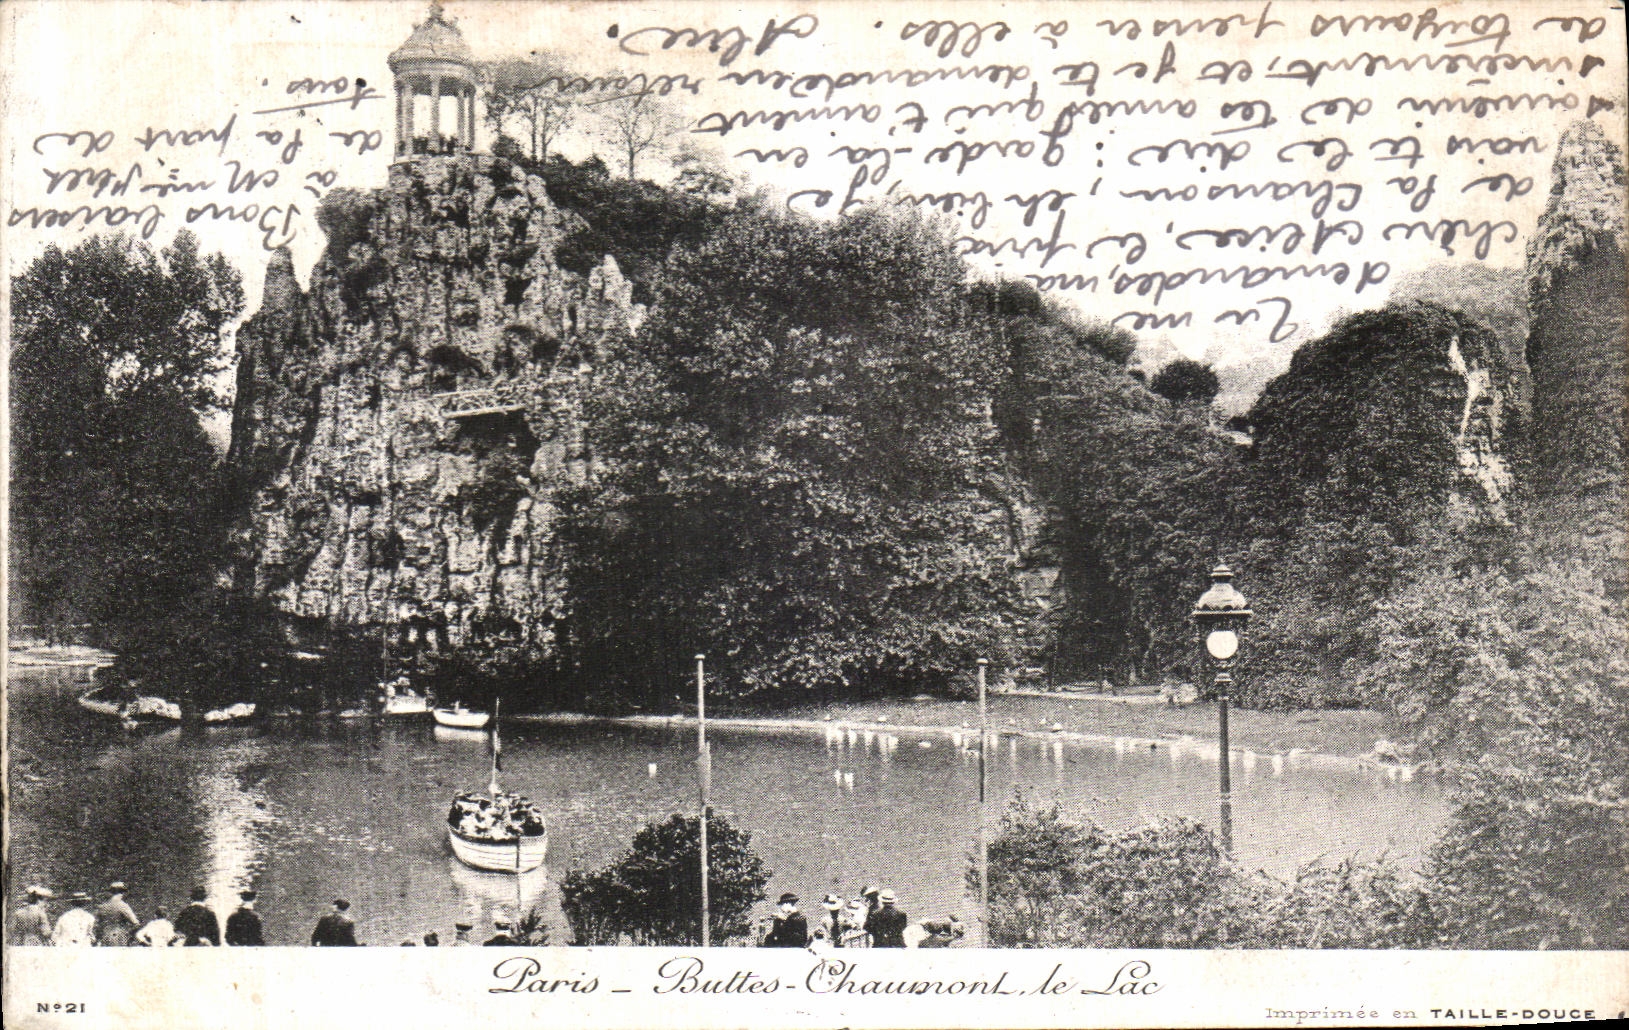 Tu me
demandes, ma
chère Alice, le prix
de la Chanson, eh bien, je
vais te le dire : garde-la en
souvenir de tes amies qui t'aiment
sincèrement, et je te demande en retour
de toujours penser à elles. Alice.
Bons baisers
à
de la part de
tous.
Paris _ Buttes-Chaumont, le Lac
Nº 21
Imprimée en TAILLE-DOUCE